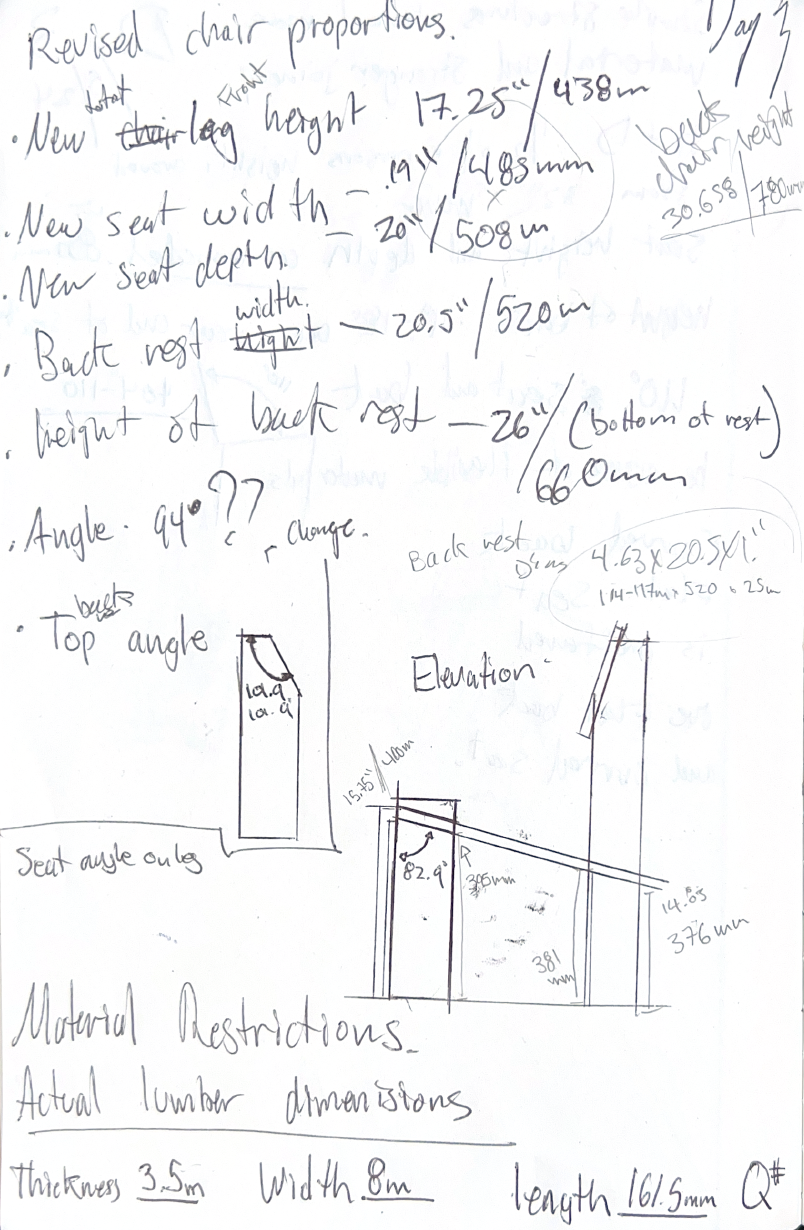 Revised chair proportions.
Day 3
total Front
• New chair leg height 17.25" / 438m
back
chair height
30.658 / 780mm
• New seat width – 19" / 483mm
x
• New seat depth. – 20" / 508m
width.
• Back rest hight – 20.5" / 520m
• height of back rest – 26" / (bottom of rest)
660mm
• Angle. 94° ?? change.
Back rest
Dims 4.63 x 20.5 x 1."
114-117m x 520 x 25m
back
• Top angle
101.9
101.9
Elevation.
15.75" / 400m
Seat angle on leg
82.9°
14.85
376mm
381
mm
Material Restrictions.
Actual lumber dimenisions
Thickness 3.5m Width 8m length 161.5mm Q#